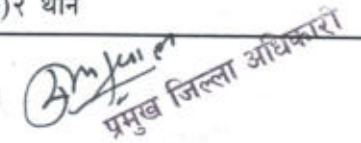 )२ थान
प्रमुख जिल्ला अधिकारी